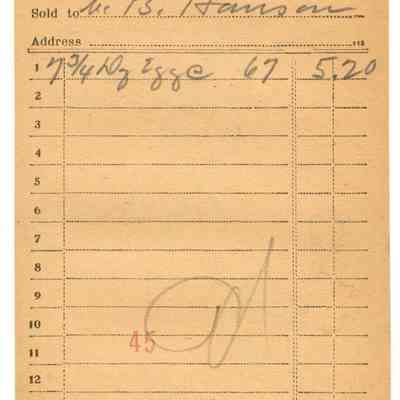 Sold to M. B. Hanson
Address
1 7 3/4 Dz Eggs @ 67 5.20
2
3
4
5
6
7
8
9
10
45
11
12